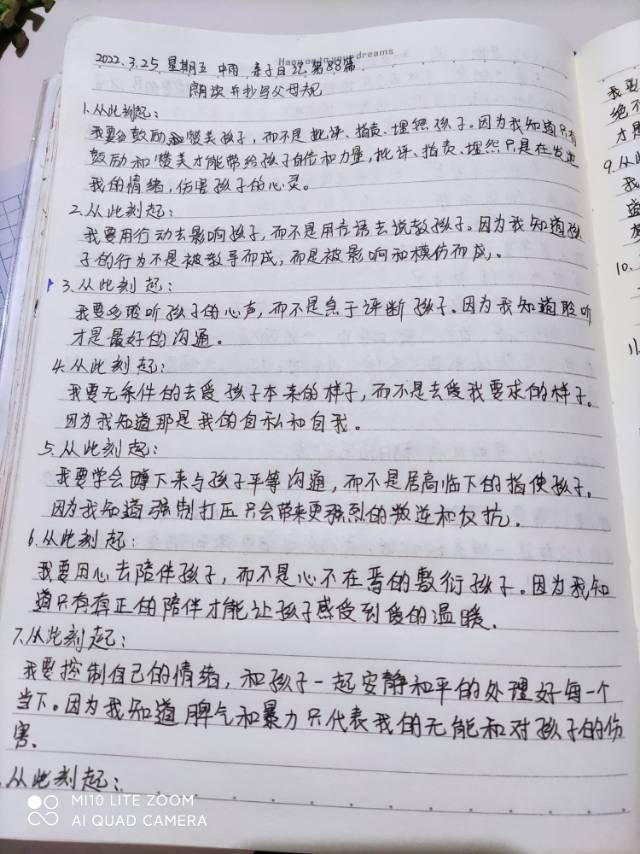 2022.3.25 星期五 中雨 亲子日记 第88篇
朗读并抄写父母规
1.从此刻起:
我要多鼓励和赞美孩子,而不是批评、指责、埋怨孩子。因为我知道只有
鼓励和赞美才能带给孩子自信和力量,批评、指责、埋怨只是在发泄
我的情绪,伤害孩子的心灵。
2.从此刻起:
我要用行动去影响孩子,而不是用言语去说教孩子。因为我知道孩
子的行为不是被教导而成,而是被影响和模仿而成。
3.从此刻起:
我要多聆听孩子的心声,而不是急于评断孩子。因为我知道聆听
才是最好的沟通。
4.从此刻起:
我要无条件的去爱孩子本来的样子,而不是去爱我要求的样子。
因为我知道那是我的自私和自我。
5.从此刻起:
我要学会蹲下来与孩子平等沟通,而不是居高临下的指使孩子。
因为我知道强制打压只会带来更强烈的叛逆和反抗。
6.从此刻起:
我要用心去陪伴孩子,而不是心不在焉的敷衍孩子。因为我知
道只有真正的陪伴才能让孩子感受到爱的温暖。
7.从此刻起:
我要控制自己的情绪,和孩子一起安静和平的处理好每一个
当下。因为我知道脾气和暴力只代表我的无能和对孩子的伤
害.
从此刻起:
我要
绝不
才是
9.从此
我
10.
11.
MI10 LITE ZOOM
AI QUAD CAMERA